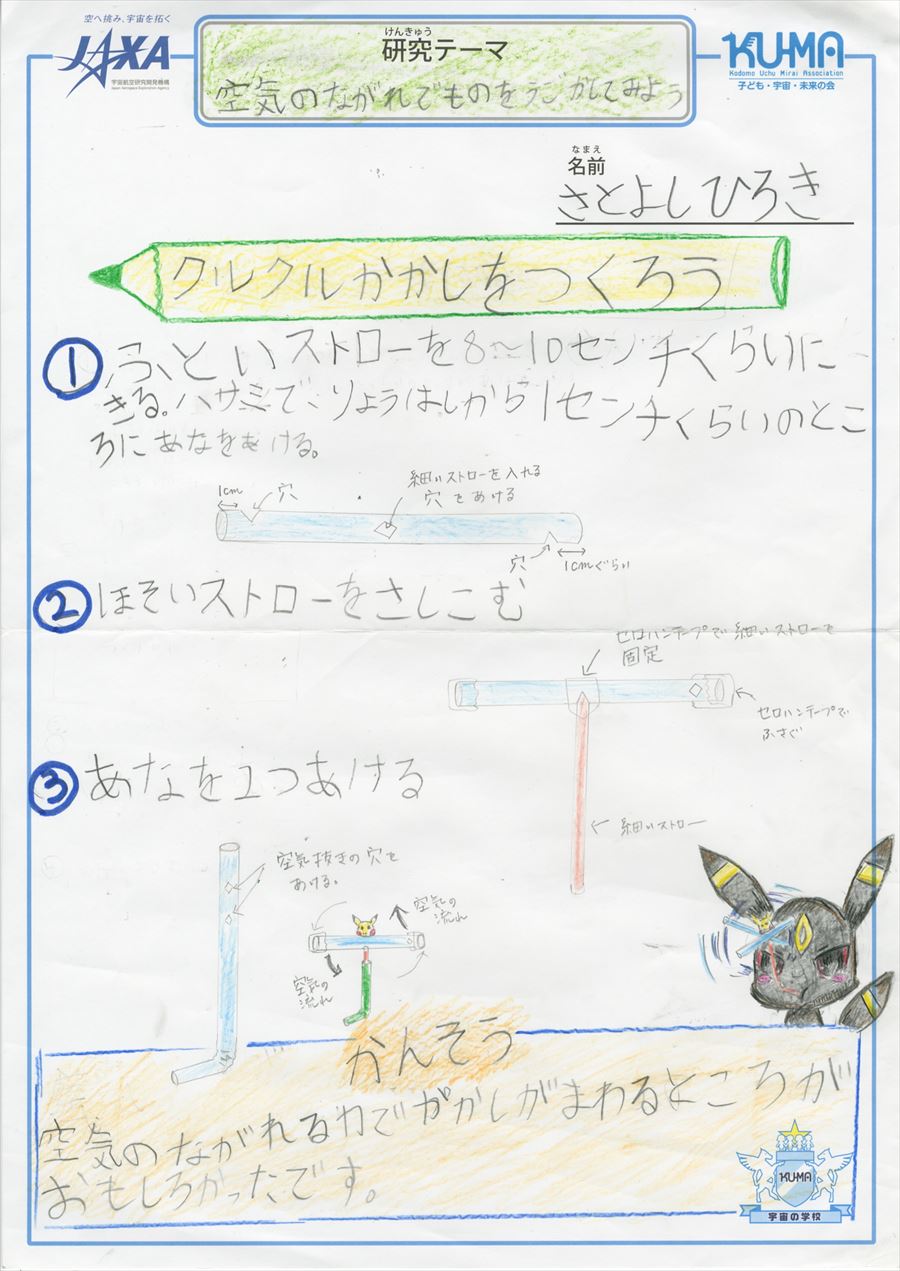 空へ挑み、宇宙を拓く
JAXA
宇宙航空研究開発機構
Japan Aerospace Exploration Agency
けんきゅう
研究テーマ
空気のながれでものをうごかしてみよう
KU-MA
Kodomo Uchu Mirai Association
子ども・宇宙・未来の会
なまえ
名前
さとよしひろき
クルクルかかしをつくろう
① ふといストローを8~10センチくらいに
きる。ハサミで、りょうはしから1センチくらいのとこ
ろにあなをあける。
1cm
穴
細いストローを入れる
穴をあける
穴
1cmぐらい
② ほそいストローをさしこむ
セロハンテープで細いストローを
固定
セロハンテープで
ふさぐ
細いストロー
③ あなを2つあける
空気抜きの穴を
あける。
空気の
流れ
空気の
流れ
かんそう
空気のながれるわでがかしがまわるところが
おもしろかったです。
KU-MA
宇宙の学校